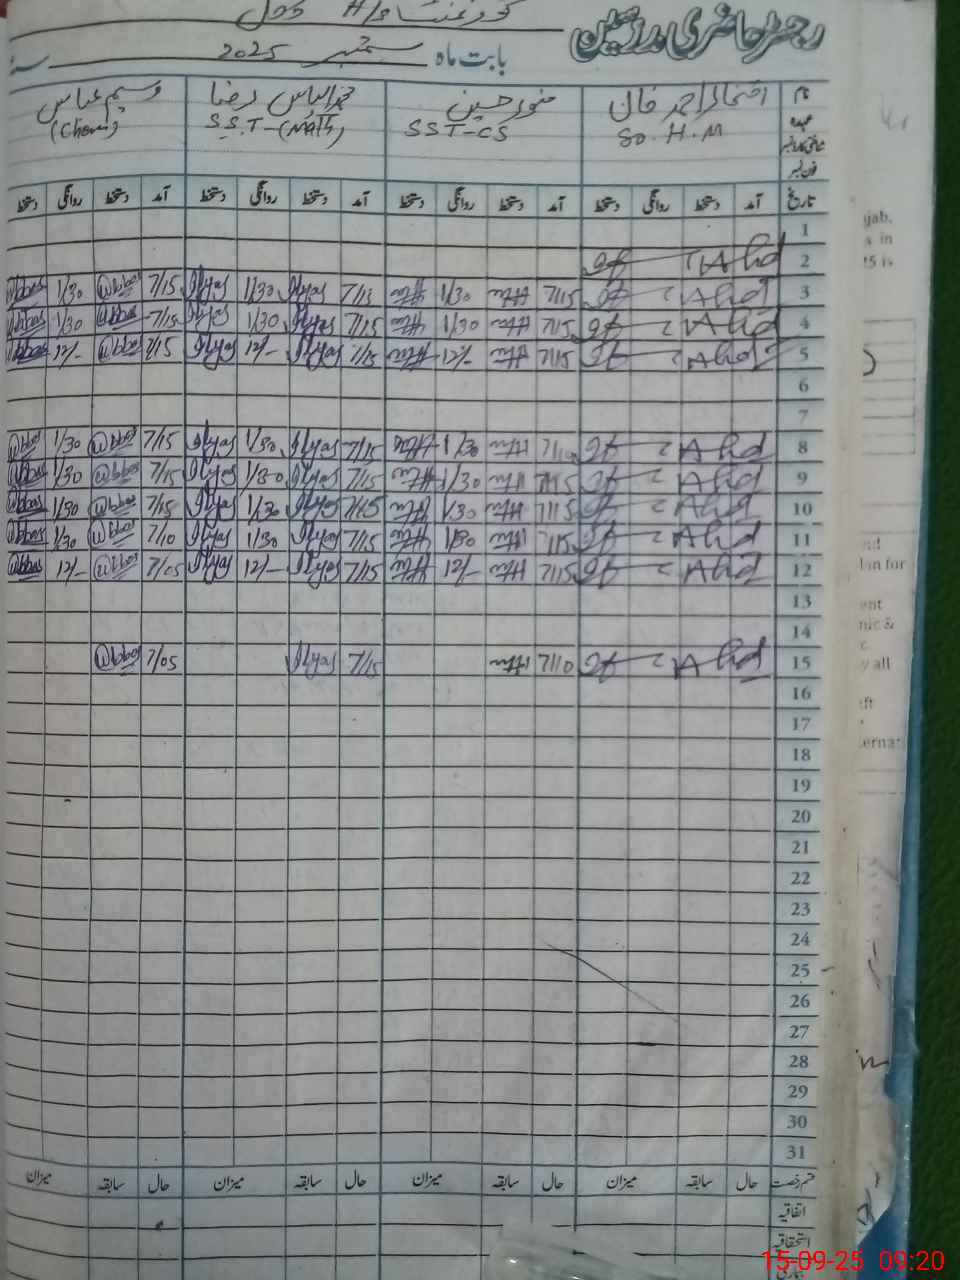 رجسٹر حاضری مدرسین
بابت ماہ ستمبر 2025 سنہ
نام افتخار احمد خان منور حسین محمد الیاس رضا وسیم عباس
عہدہ So. H.M SST-CS S.S.T-(Math) (Chem)
شناختی کارڈ نمبر
فون نمبر
تاریخ آمد دستخط روانگی دستخط آمد دستخط روانگی دستخط آمد دستخط روانگی دستخط آمد دستخط روانگی دستخط
1
2 Ahd
3 Ahd 7/15 1/30 7/15 Ilyas 1/30 Ilyas 7/15 @bbas 1/30 @bbas
4 Ahd 7/15 1/30 7/15 Ilyas 1/30 Ilyas 7/15 @bbas 1/30 @bbas
5 Ahd 7/15 12/- 7/15 Ilyas 12/- Ilyas 7/15 @bbas 12/- @bbas
6
7
8 Ahd 1/30 7/15 Ilyas 1/30 Ilyas 7/15 @bbas 1/30 @bbas
9 Ahd 7/15 1/30 7/15 Ilyas 1/30 Ilyas 7/15 @bbas 1/30 @bbas
10 Ahd 7/15 1/30 7/15 Ilyas 1/30 Ilyas 7/15 @bbas 1/30 @bbas
11 Ahd 7/15 1/30 7/15 Ilyas 1/30 Ilyas 7/10 @bbas 1/30 @bbas
12 Ahd 7/15 12/- 7/15 Ilyas 12/- Ilyas 7/05 @bbas 12/- @bbas
13
14
15 Ahd 7/10 7/15 Ilyas 7/05 @bbas
16
17
18
19
20
21
22
23
24
25
26
27
28
29
30
31
قسم رخصت حال سابقہ میزان حال سابقہ میزان حال سابقہ میزان حال سابقہ میزان
اتفاقیہ
استحقاقیہ
بیماری
15-09-25 09:20